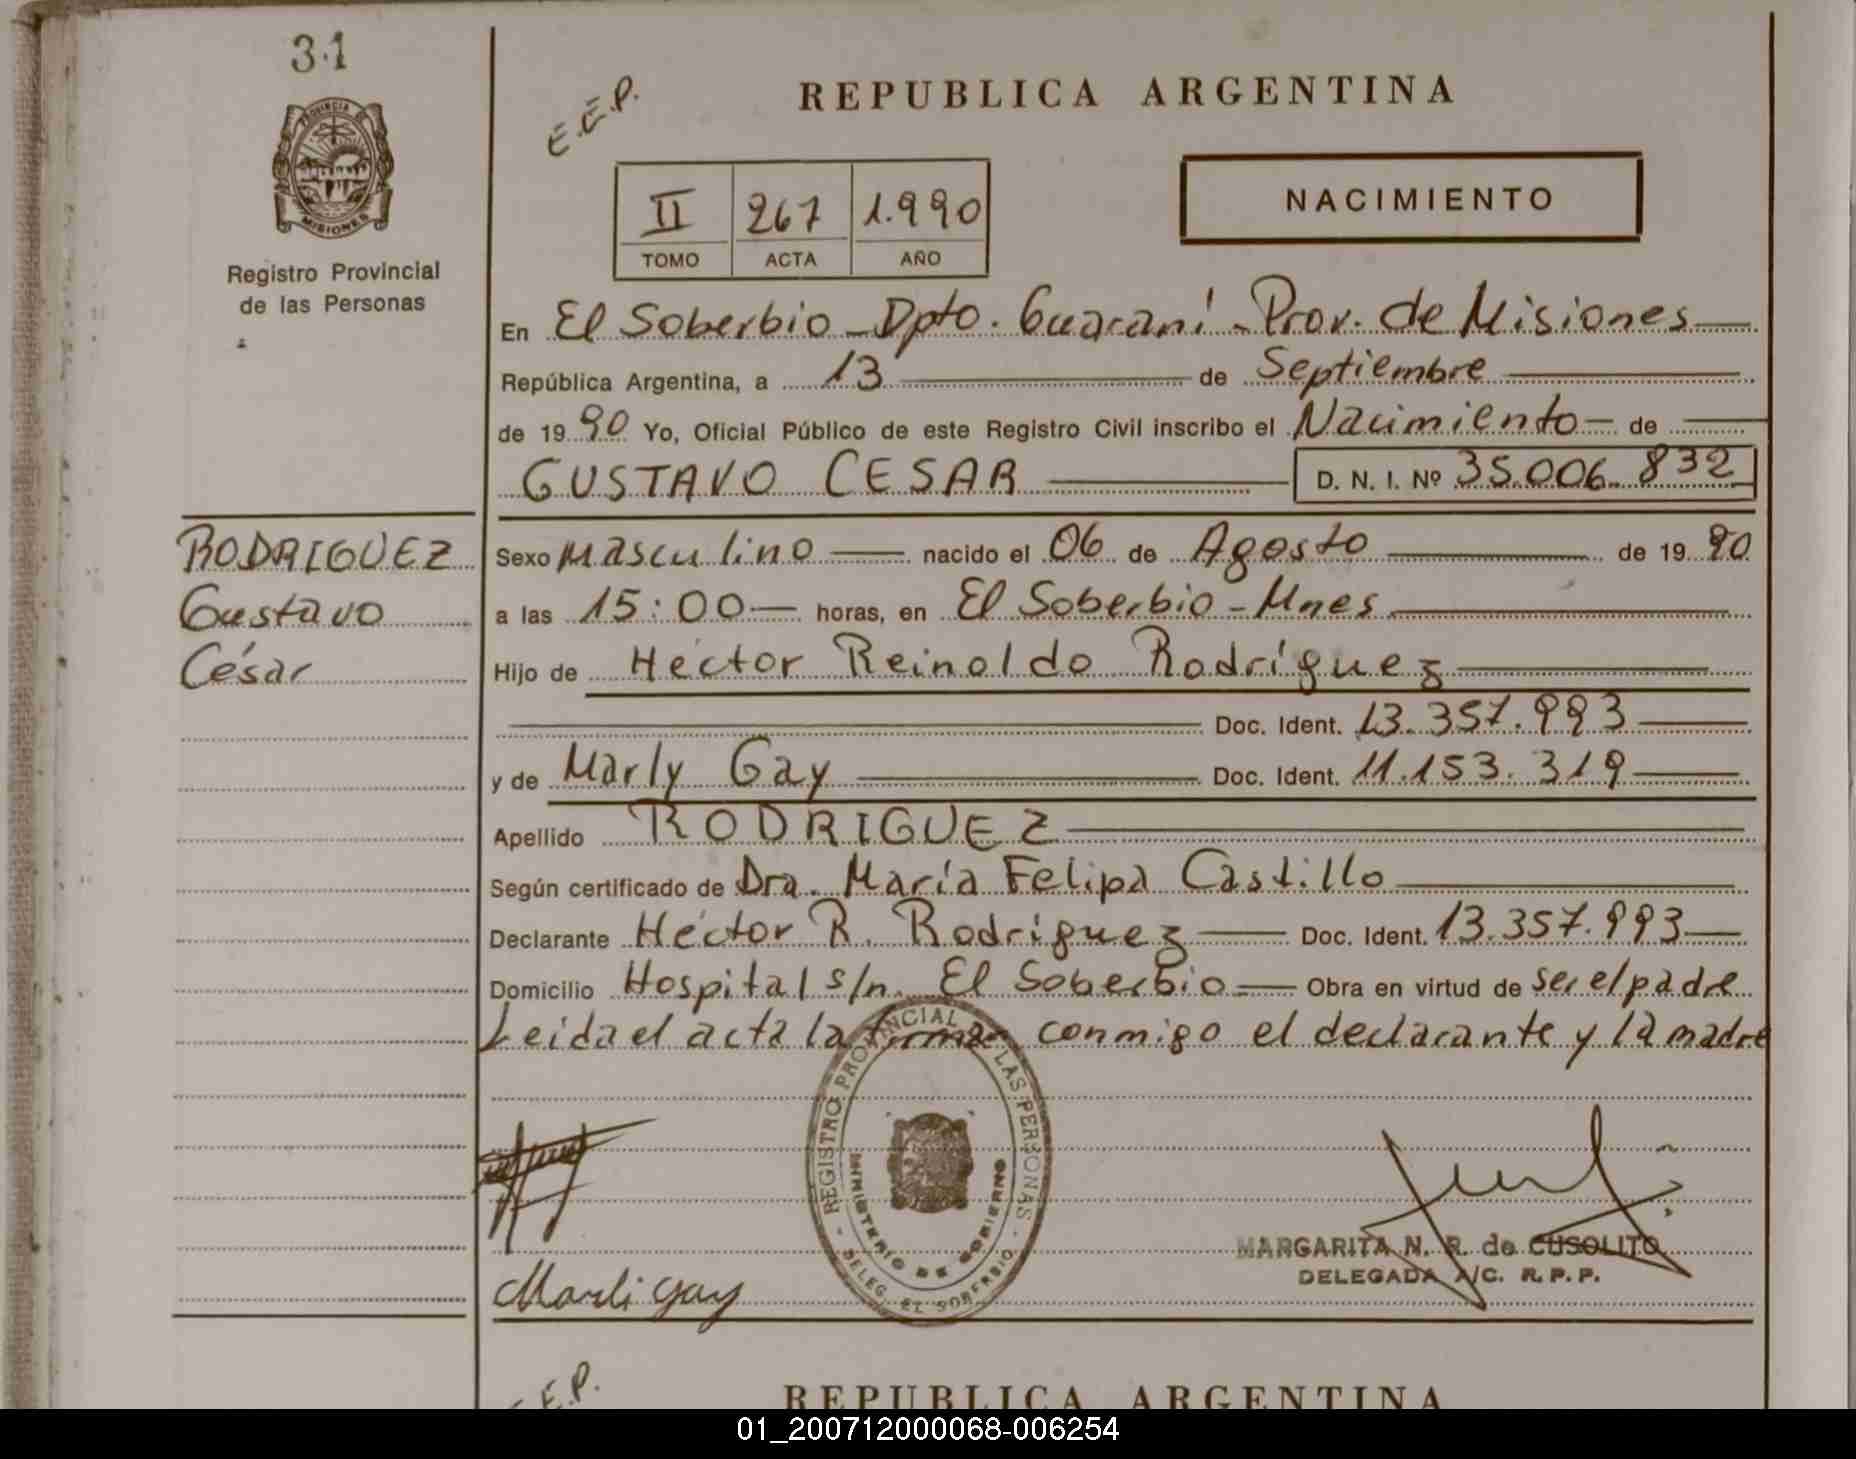 31
PROVINCIA DE
MISIONES
Registro Provincial
de las Personas
E.E.P.
REPUBLICA ARGENTINA
II 267 1.990
TOMO ACTA AÑO
NACIMIENTO
En El Soberbio - Dpto. Guaraní - Prov. de Misiones
República Argentina, a 13 de Septiembre
de 1990 Yo, Oficial Público de este Registro Civil inscribo el Nacimiento de
GUSTAVO CESAR D. N. I. Nº 35.006.832
RODRIGUEZ
Gustavo
César
Sexo masculino nacido el 06 de Agosto de 1990
a las 15:00 horas, en El Soberbio - Mnes
Hijo de Héctor Reinoldo Rodríguez
Doc. Ident. 13.357.993
y de Marly Gay Doc. Ident. 11.153.319
Apellido RODRIGUEZ
Según certificado de Dra. María Felipa Castillo
Declarante Héctor R. Rodríguez Doc. Ident. 13.357.993
Domicilio Hospital s/n. El Soberbio Obra en virtud de ser el padre
Leida el acta la firman conmigo el declarante y la madre
REGISTRO PROVINCIAL DE LAS PERSONAS
MINISTERIO DE GOBIERNO
DELEG. EL SOBERBIO
MARGARITA N. R. de CUSOLITO
DELEGADA A/C. R. P. P.
Marli Gay
E.E.P.
REPUBLICA ARGENTINA
01_200712000068-006254